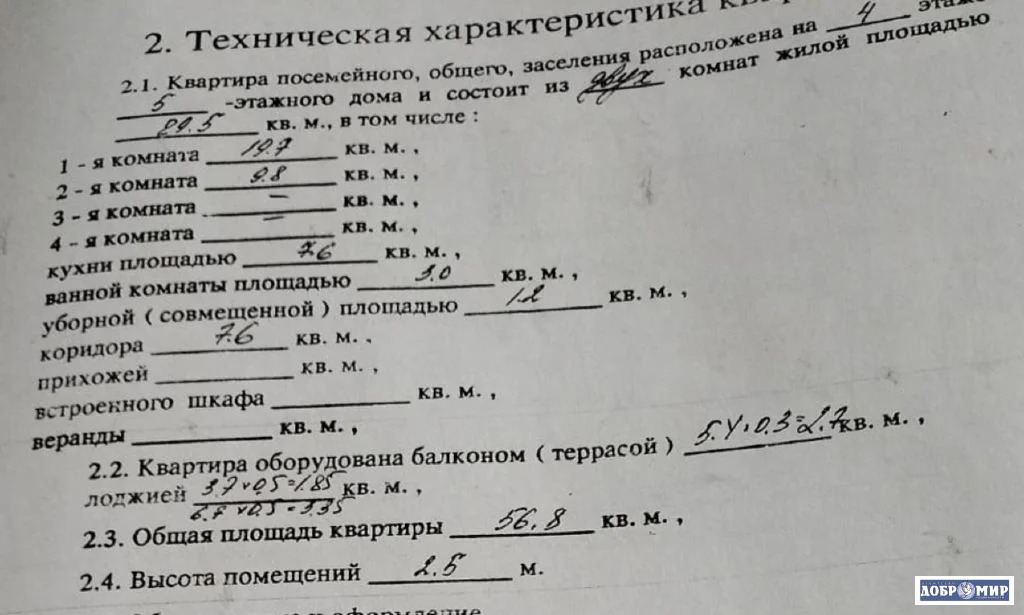 2. Техническая характеристика
2.1. Квартира посемейного, общего, заселения расположена на 4
5 -этажного дома и состоит из двух комнат жилой площадью
29.5 кв. м., в том числе :
1 - я комната 19.7 кв. м. ,
2 - я комната 9.8 кв. м. ,
3 - я комната — кв. м. ,
4 - я комната — кв. м. ,
кухни площадью 7.6 кв. м. ,
ванной комнаты площадью 3.0 кв. м. ,
уборной ( совмещенной ) площадью 1.2 кв. м. ,
коридора 7.6 кв. м. ,
прихожей кв. м. ,
встроенного шкафа кв. м. ,
веранды кв. м. ,
2.2. Квартира оборудована балконом ( террасой ) кв. м. ,
лоджией 3.7×0.5=1.85 кв. м. ,
6.7×0.5=3.35
2.3. Общая площадь квартиры 56.8 кв. м. ,
2.4. Высота помещений 2.5 м.
ДОБРОМИР